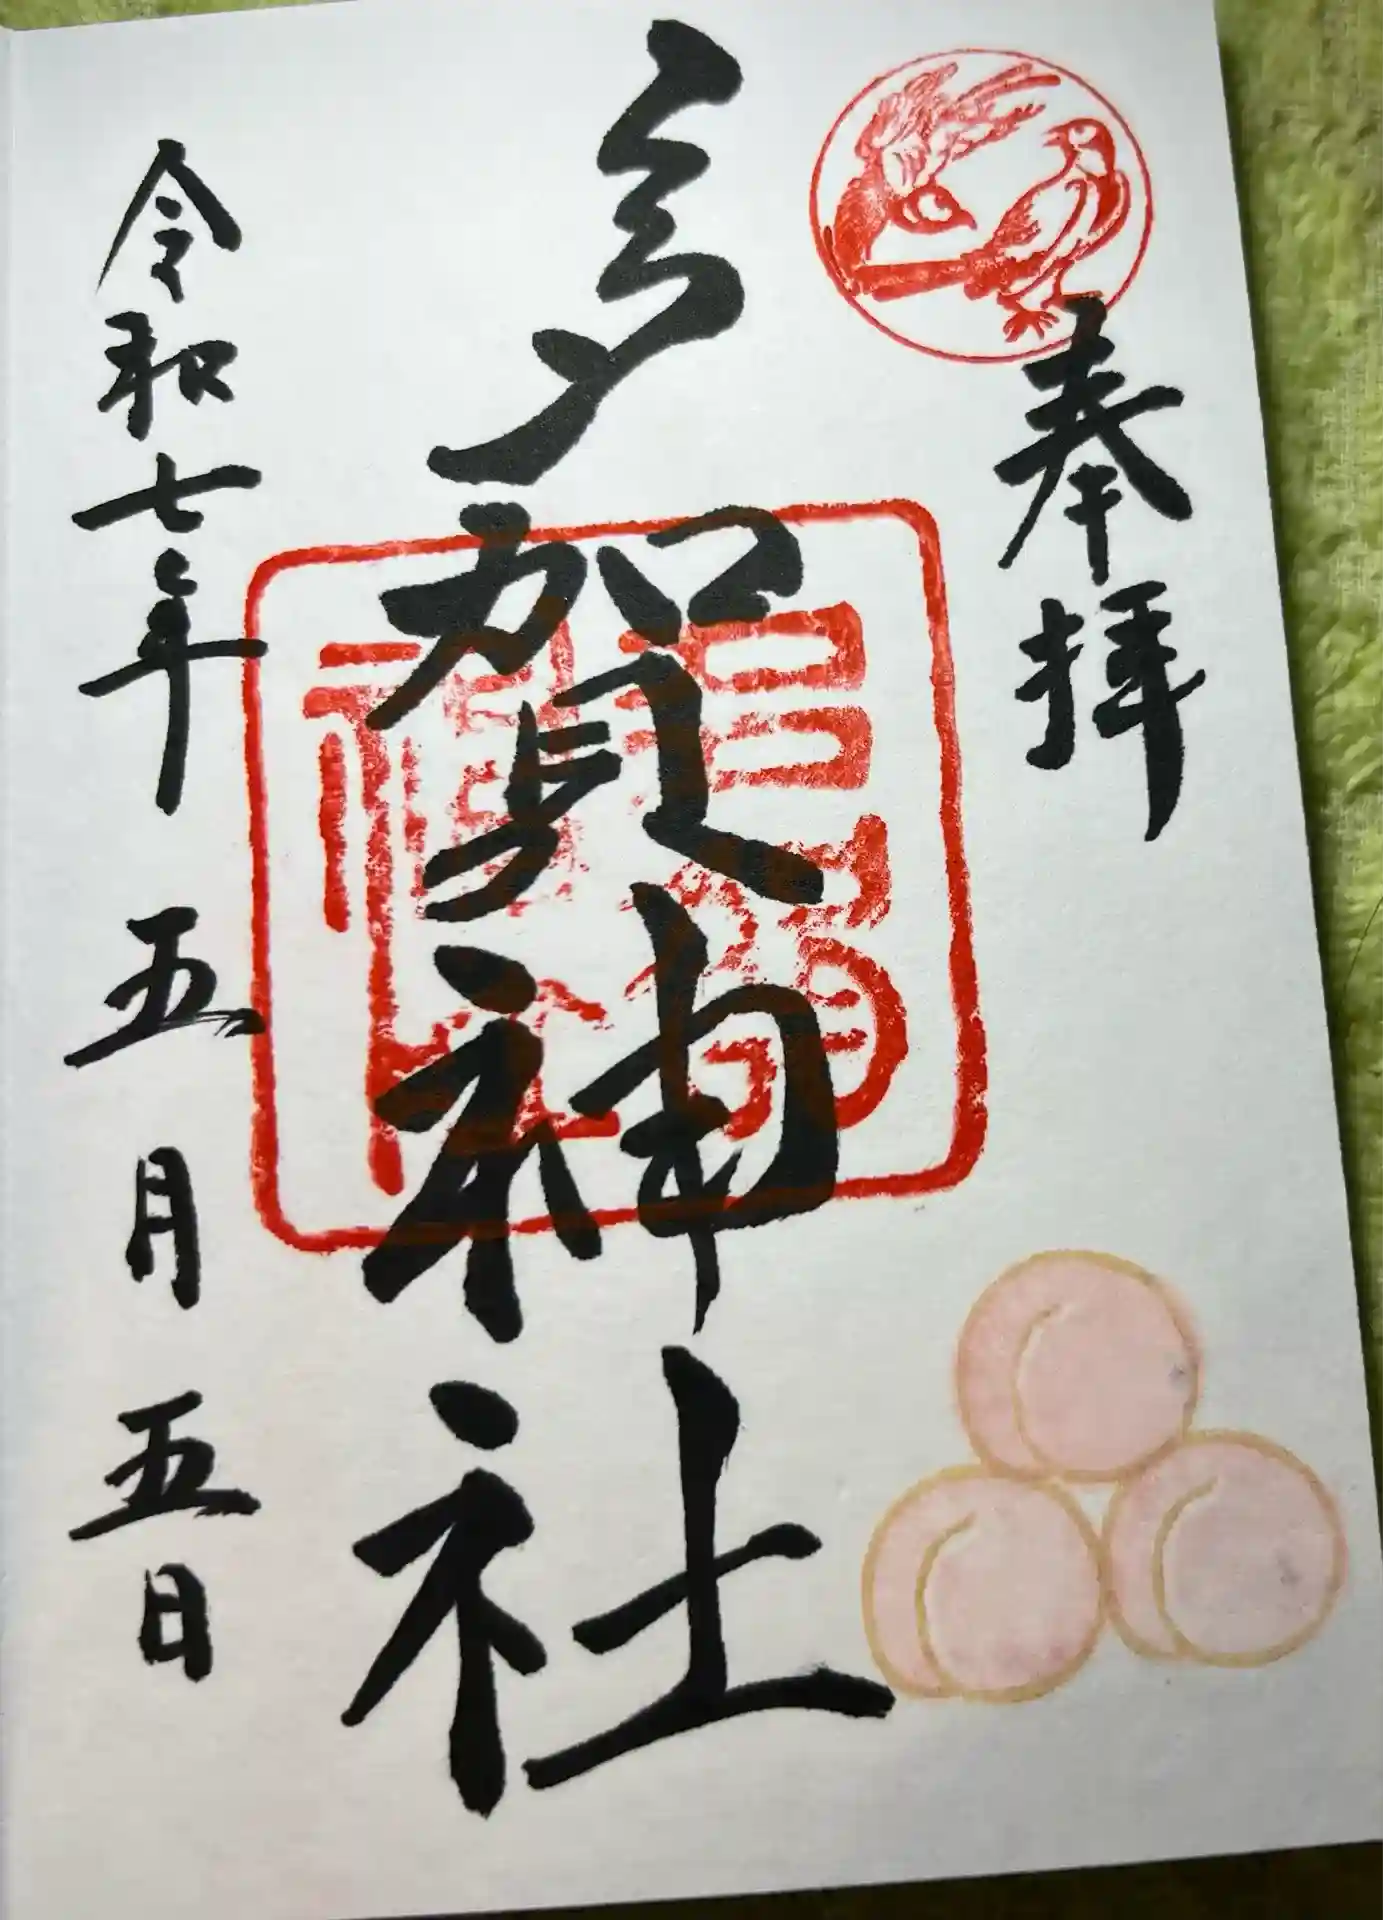 奉拝
多賀神社
令和七年 五月 五日